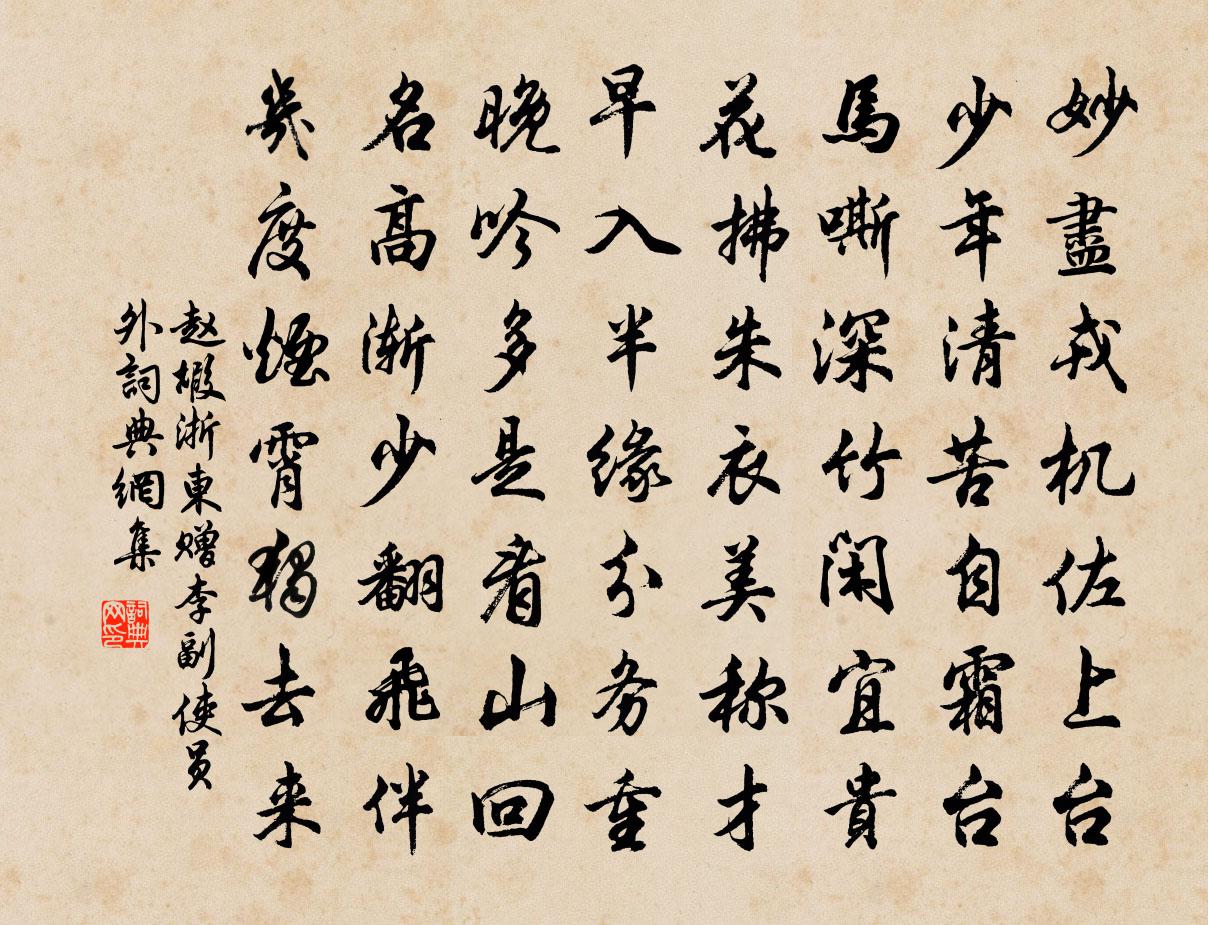 妙盡戎机佐上台
少年清苦自霜台
馬嘶深竹閑宜貴
花拂朱衣美称才
早入半缘分务重
晚吟多是看山回
名高渐少翻飛伴
幾度煙霄獨去来
赵嘏浙東赠李副使員
外詞典網集
詞典
网印